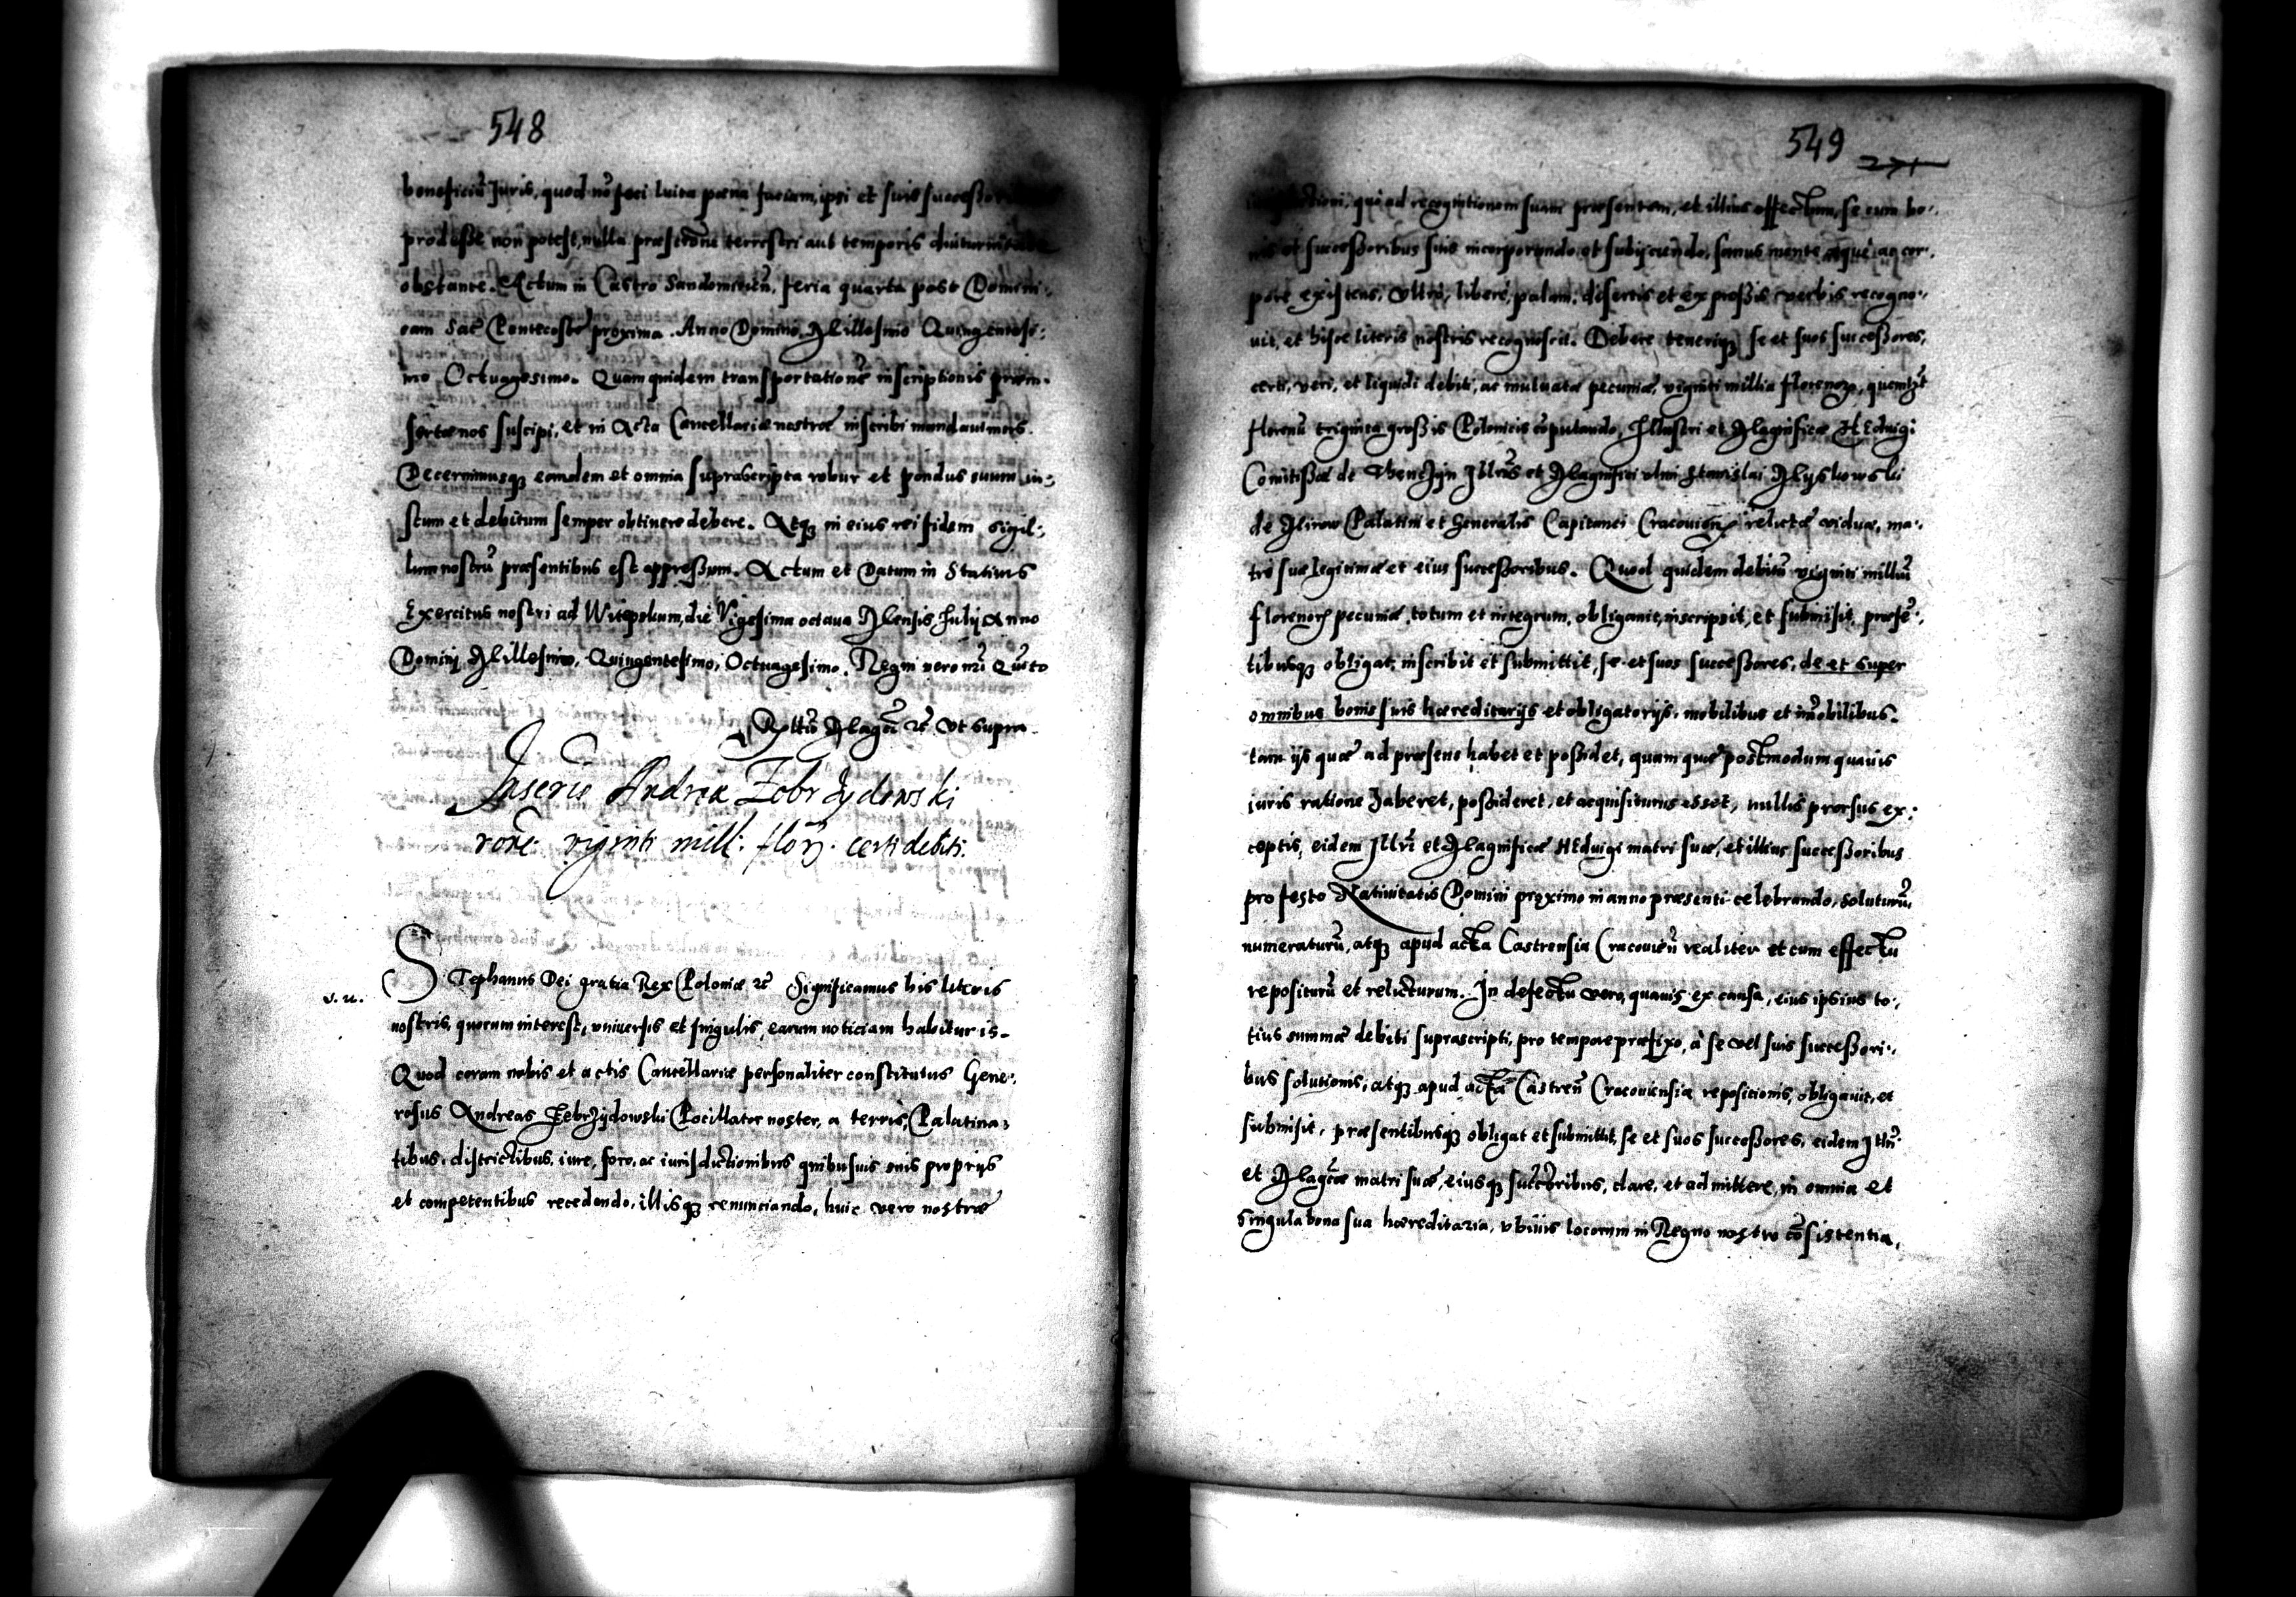 548
beneficiũ Juris, quod nõ feci luita pœna faciam, ipsi et suis successor
prodesse non potest, nulla præscriõne terrestri aut temporis diuturnitate
obstante. Actum in Castro Sandomirieñ, feria quarta post Domini-
cam Sac̃ Pentecostẽ proxima. Anno Domini Millesimo Quingentesi-
mo Octuagesimo. Quam quidem transportationẽ inscriptionis præin-
sertæ nos suscipi, et in Acta Cancellariæ nostræ inscribi mandauimus.
Decernimusq₃ eamdem et omnia suprascripta robur et pondus suum iu-
stum et debitum semper obtinere debere. Atq₃ in eius rei fidem sigil-
lum nostrũ præsentibus est appressum. Actum et Datum in Statiuis
Exercitus nostri ad Witepskum, die Vigesima octaua Mensis Julij Anno
Domini Millesimo, Quingentesimo, Octuagesimo. Regni vero nr̃i Quĩto
Rel̃tio Mag̃ci &c̃ ut supra
Inscriő Andreæ Zebrzydowski
rõne viginti mill: flor̃. certi debiti.
S. u.
STephanus Dei gratia Rex Poloniæ &c̃ Significamus his literis
nostris, quorum interest, vniuersis et singulis, earum noticiam habituris.
Quod coram nobis et actis Cancellariæ personaliter constitutus Gene-
rosus Andreas Zebrzydowski Pocillator noster, a terris, Palatina-
tibus, districtibus, iure, foro, ac iurisdictionibus quibusuis suis proprijs
et competentibus recedendo, illisq₃ renunciando, huic vero nostræ
549
271
qui ad recognitionem suam præsentem, et illius effectum, se cum bo-
nis et successoribus suis incorporando et subijciendo, sanus mente atque ac cor-
pore existens, vltro, libere, palam, disertis et expressis verbis recogno-
uit, et hisce literis nostris recognoscit. Debere teneriq₃ se et suos successores,
certi, veri, et liquidi debiti, ac mutuatæ pecuniæ, viginti millia florenor̃, quemlz̃t
florenũ triginta grossis Polonicis cõputando, Illustri et Magnificæ Heduigi
Comitissæ de Thenczyn Ill̃ris et Magnifici olim Stanislai Myszkowski
de Mirow Palatini et Generalis Capitanei Cracouieñ relictæ viduæ, ma-
tri suæ legitimæ et eius successoribus. Quod quidem debitũ viginti milliũ
florenor̃ pecuniæ, totum et integrum, obligauit, inscripsit, et submisit, præsẽ-
tibusq₃ obligat, inscribit et submittit, se et suos successores, de et super
omnibus bonis suis hæreditarijs et obligatorijs, mobilibus et im̃obilibus,
tam ijs quæ ad præsens habet et possidet, quam quæ postmodum quauis
iuris ratione haberet, possideret, et acquisiturus esset, nullis prorsus ex-
ceptis, eidem Ill̃ri et Magnificæ Heduigi matri suæ, et illius successoribus
pro festo Natiuitatis Domini proximo in anno præsenti celebrando, soluturũ,
numeraturũ, atq₃ apud acta Castrensia Cracouieñ realiter et cum effectu
repositurũ et relicturum. In defectu vero, quauis ex causa, eius ipsius to-
tius summæ debiti suprascripti, pro tempore præfixo, à se vel suis successori-
bus solutionis, atq₃ apud acta Castreñ Cracouiensia repositionis, obligauit, et
submisit, præsentibusq₃ obligat et submittit, se et suos successores, eidem Ill̃ri
et Mag̃cæ matri suæ, eiusq₃ succ̃oribus, dare, et admittere, in omnia et
singula bona sua hæreditaria, vbiuis locorum in Regno nostro cõsistentia,